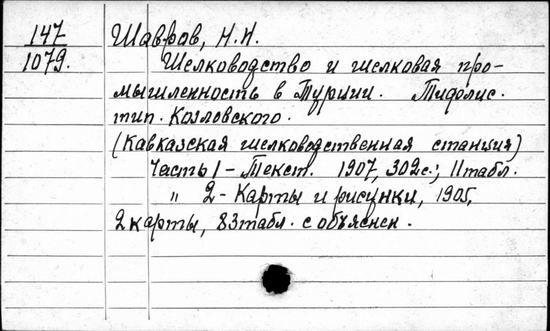 147
1079.
Шавров, Н.Н.
Шелководство и шелковая про-
мышленность в Турции. Тифлис.
тип. Козловского.
(Кавказская шелководственная станция)
Часть 1 - Текст. 1907, 302с.; 11табл.
" 2 - Карты и рисунки, 1905,
2 карты, 83табл. с объяснен.